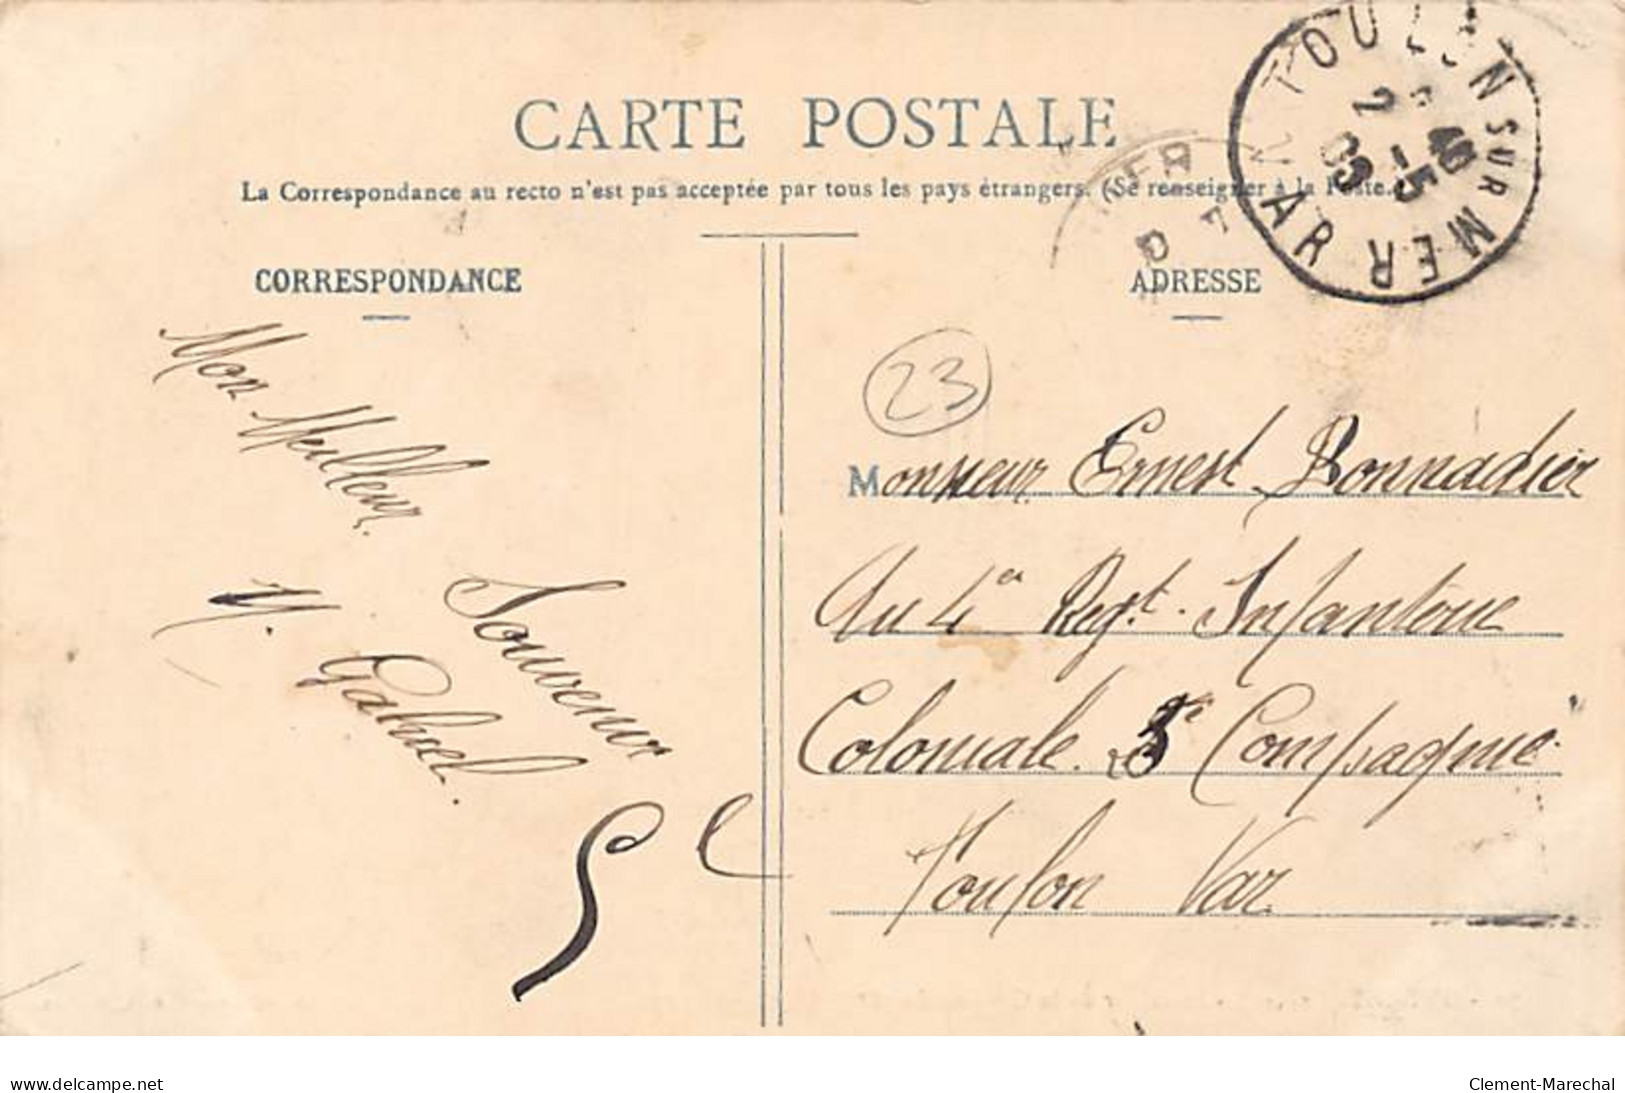 CARTE POSTALE
La Correspondance au recto n'est pas acceptée par tous les pays étrangers. (Se renseigner à la Poste.)
TOULON SUR MER
VAR
CORRESPONDANCE
ADRESSE
23
Mon Meilleur
Souvenir
Gabriel.
Monsieur Ernest Bonnadier
Au 4e Regt. Infanterie
Coloniale. Compagnie
Toulon Var
delcampe.net
Clement-Marechal